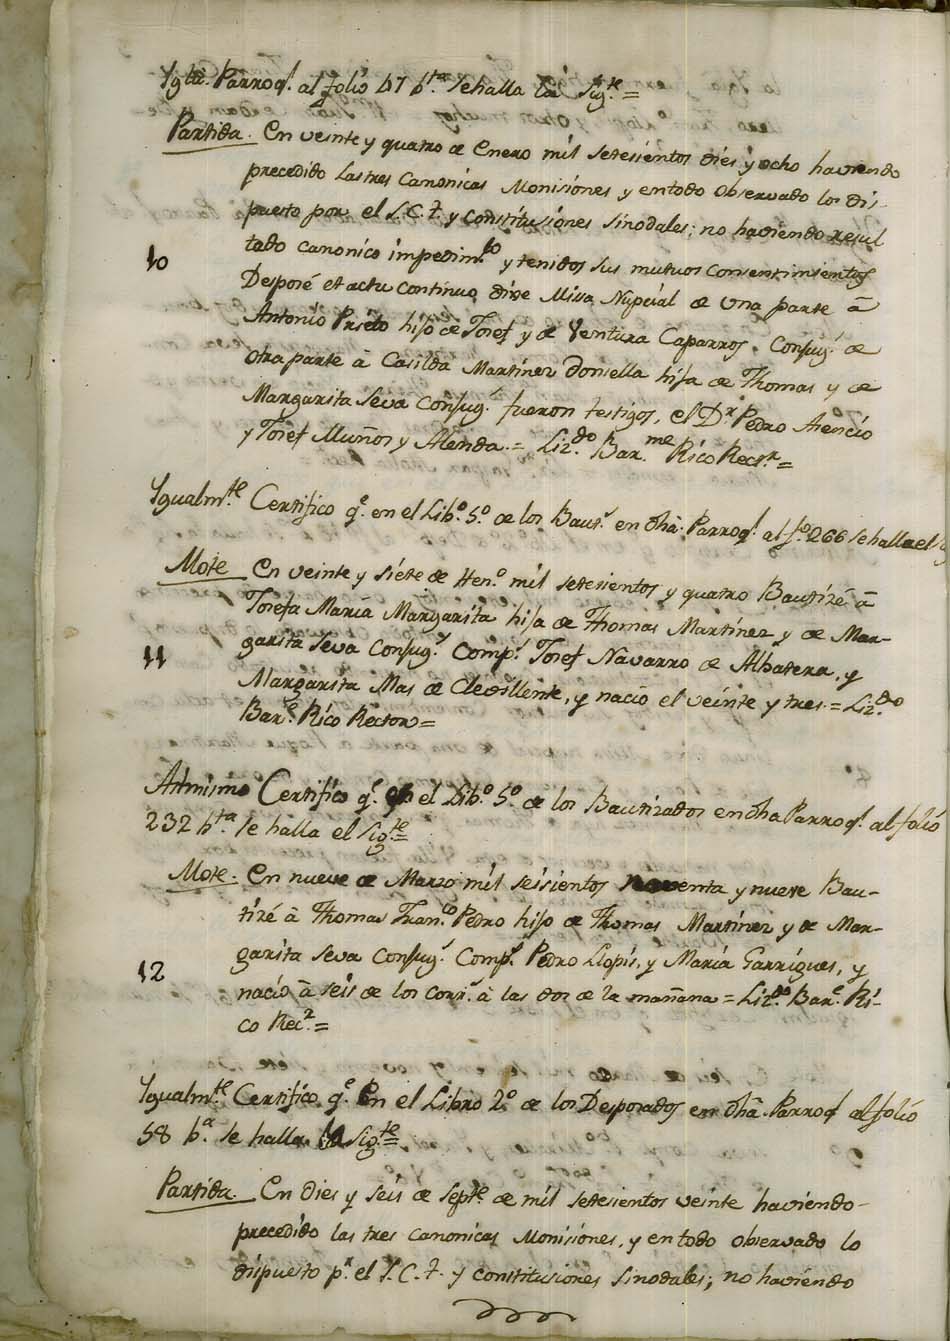 Iglã. Parroql. al folio 47 bta. se halla la sigte.=
Partida. En veinte y quatro de Enero mil setesientos dies y ocho haviendo
precedido las tres Canonicas Monisiónes y en todo observado lo dis-
puesto por el S.C.T. y constitusiónes sinodales; no haviendo resul
tado canonico impedimto. y tenidos sus mutuos consentimientos
10
Desposé et actu continuo dixe Missa Nupcial de una parte â
Antonio Prieto hijo de Josef y de Ventura Caparros. Conjugs. de
otra parte â Casilda Martinez donsella hija de Thomas y de
Margarita Seva Conjugs. fueron testigos, el Dr. Pedro Asencio
y Josef Muños y Alenda.= Lizdo. Barme. Rico Rectr.=
Igualmte. Certifico qe. en el Libo. 5o. de los Bauts. en dhã. Parroql. al fo. 266 se halla el
Mote En veinte y siete de Heno. mil setesientos y quatro Bautizé â
Josefa Maria Margarita hija de Thomas Martinez y de Mar-
garita Seva Conjugs. Comps. Josef Navarro de Albatera, y
11
Margarita Mas de Crevillente, y nacio el veinte y tres.= Lizdo.
Bare. Rico Rector=
Asimismo Certifico qe. en el Libo. 5o. de los Bautizados en dha Parroql. al folio
232 bta. se halla el sigte.=
Mote. En nueve de Marzo mil seisientos noventa y nueve Bau-
tizé â Thomas Franco. Pedro hijo de Thomas Martinez y de Mar-
garita Seva Conjugs. Comps. Pedro Llopis, y Maria Garrigues, y
12
nació â seis de los corrs. â las dos de la mañana = Lizdo. Bare. Ri-
co Recr.=
Igualmte. Certifico qe. En el Libro 2o. de los Desposados en dhã. Parroql al folio
58 ba. se halla la sigte.=
Partida. En dies y seis de Septe. de mil setesientos veinte haviendo-
precedido las tres canonicas Monisiónes, y en todo observado lo
dispuesto pr. el S.C.T. y constitusiones sinodales; no haviendo